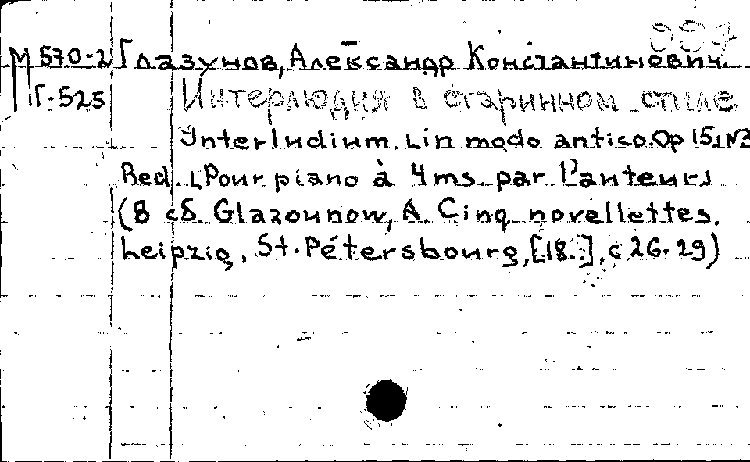 М 570-2 Глазунов, Александр Константинович.
Г-525 Интерлюдия в старинном стиле
Interludium. Lin modo antico. Op 15, N3
Red. Pour piano à 4 ms par l'auteur
(В сб. Glazounow, A. Cinq novellettes.
Leipzig, St. Pétersbourg, [18..], с 26-29)